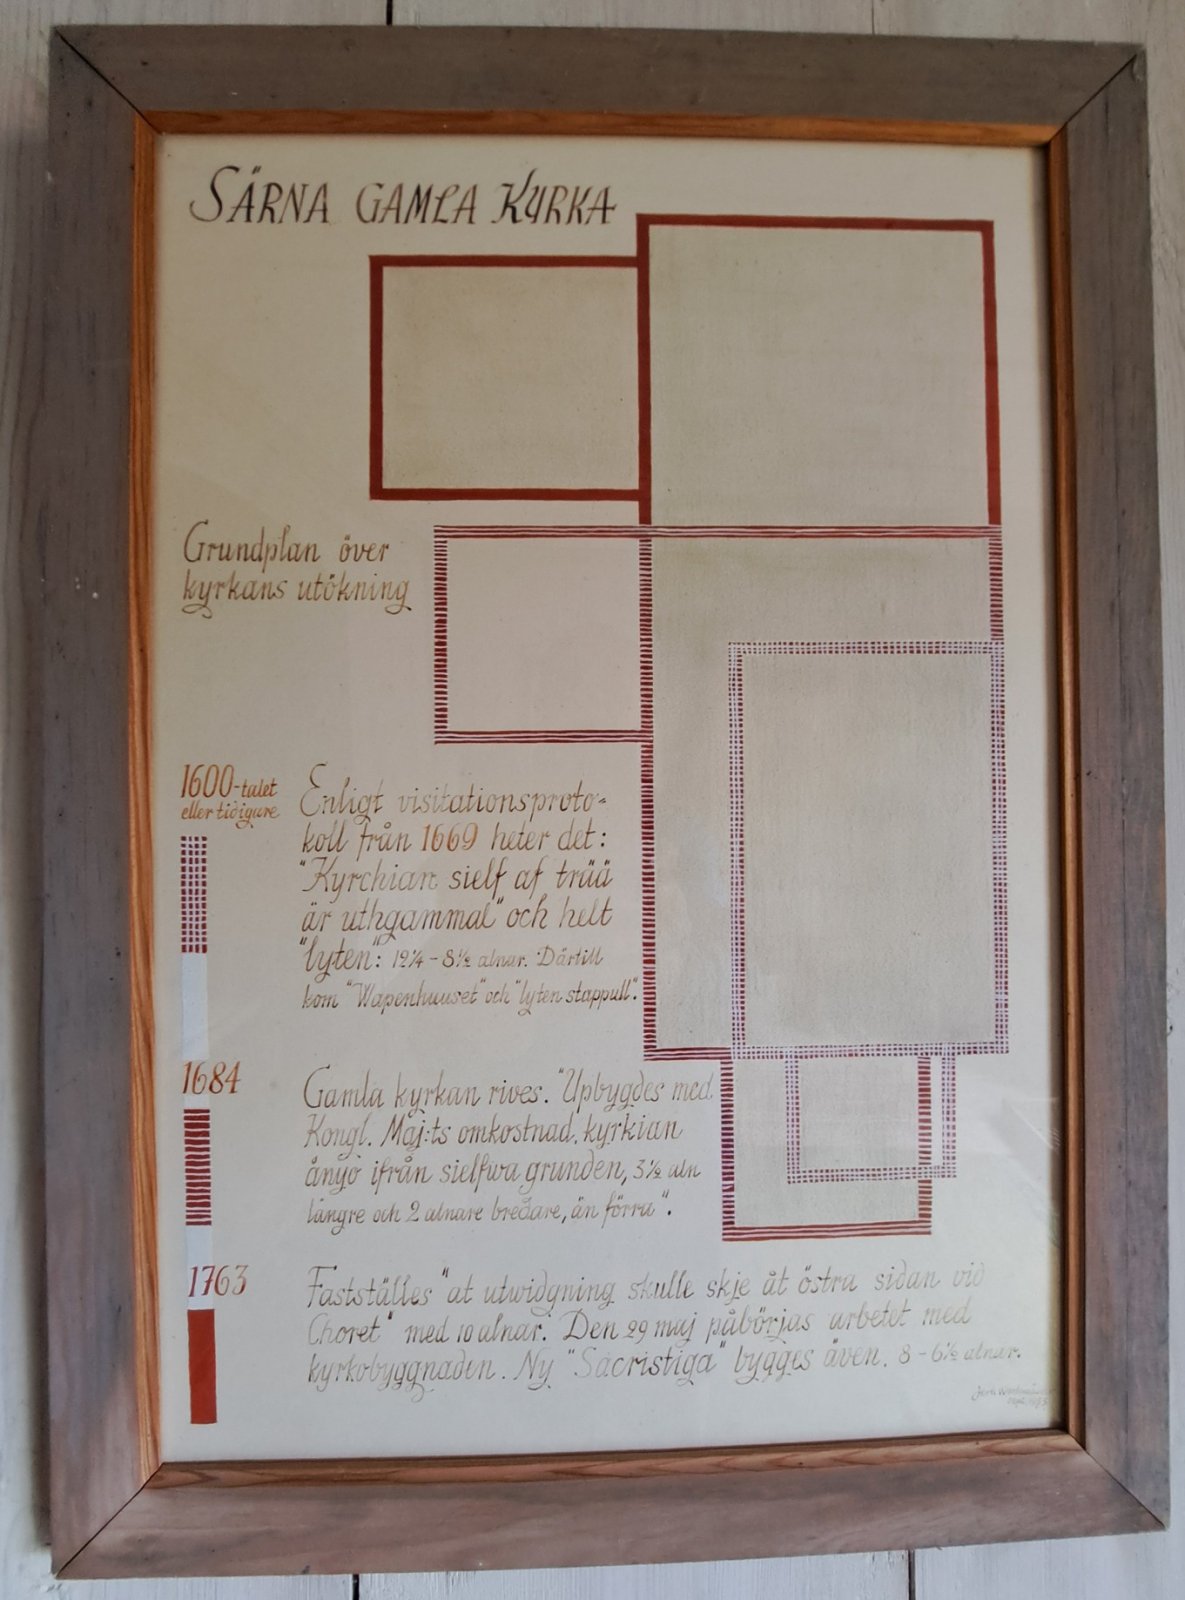 SÄRNA GAMLA KYRKA
Grundplan över
kyrkans utökning
1600-talet
eller tidigare
Enligt visitationsproto-
koll från 1669 heter det:
"Kyrchian sielf af trää
är uthgammal" och helt
"lyten": 12 1/4 - 8 1/2 alnar. Därtill
kom "Wapenhuuset" och "lyten stappull".
1684
Gamla kyrkan rives. "Upbygdes med
Kongl. Maj:ts omkostnad, kyrkian
ånyo ifrån sielfwa grunden, 3 1/2 aln
längre och 2 alnare bredare, än förra".
1763
Fastställes "at utwidgning skulle skje åt östra sidan vid
Choret" med 10 alnar. Den 29 maj påbörjas arbetet med
kyrkobyggnaden. Ny "Sacristiga" bygges även. 8 - 6 1/2 alnar.